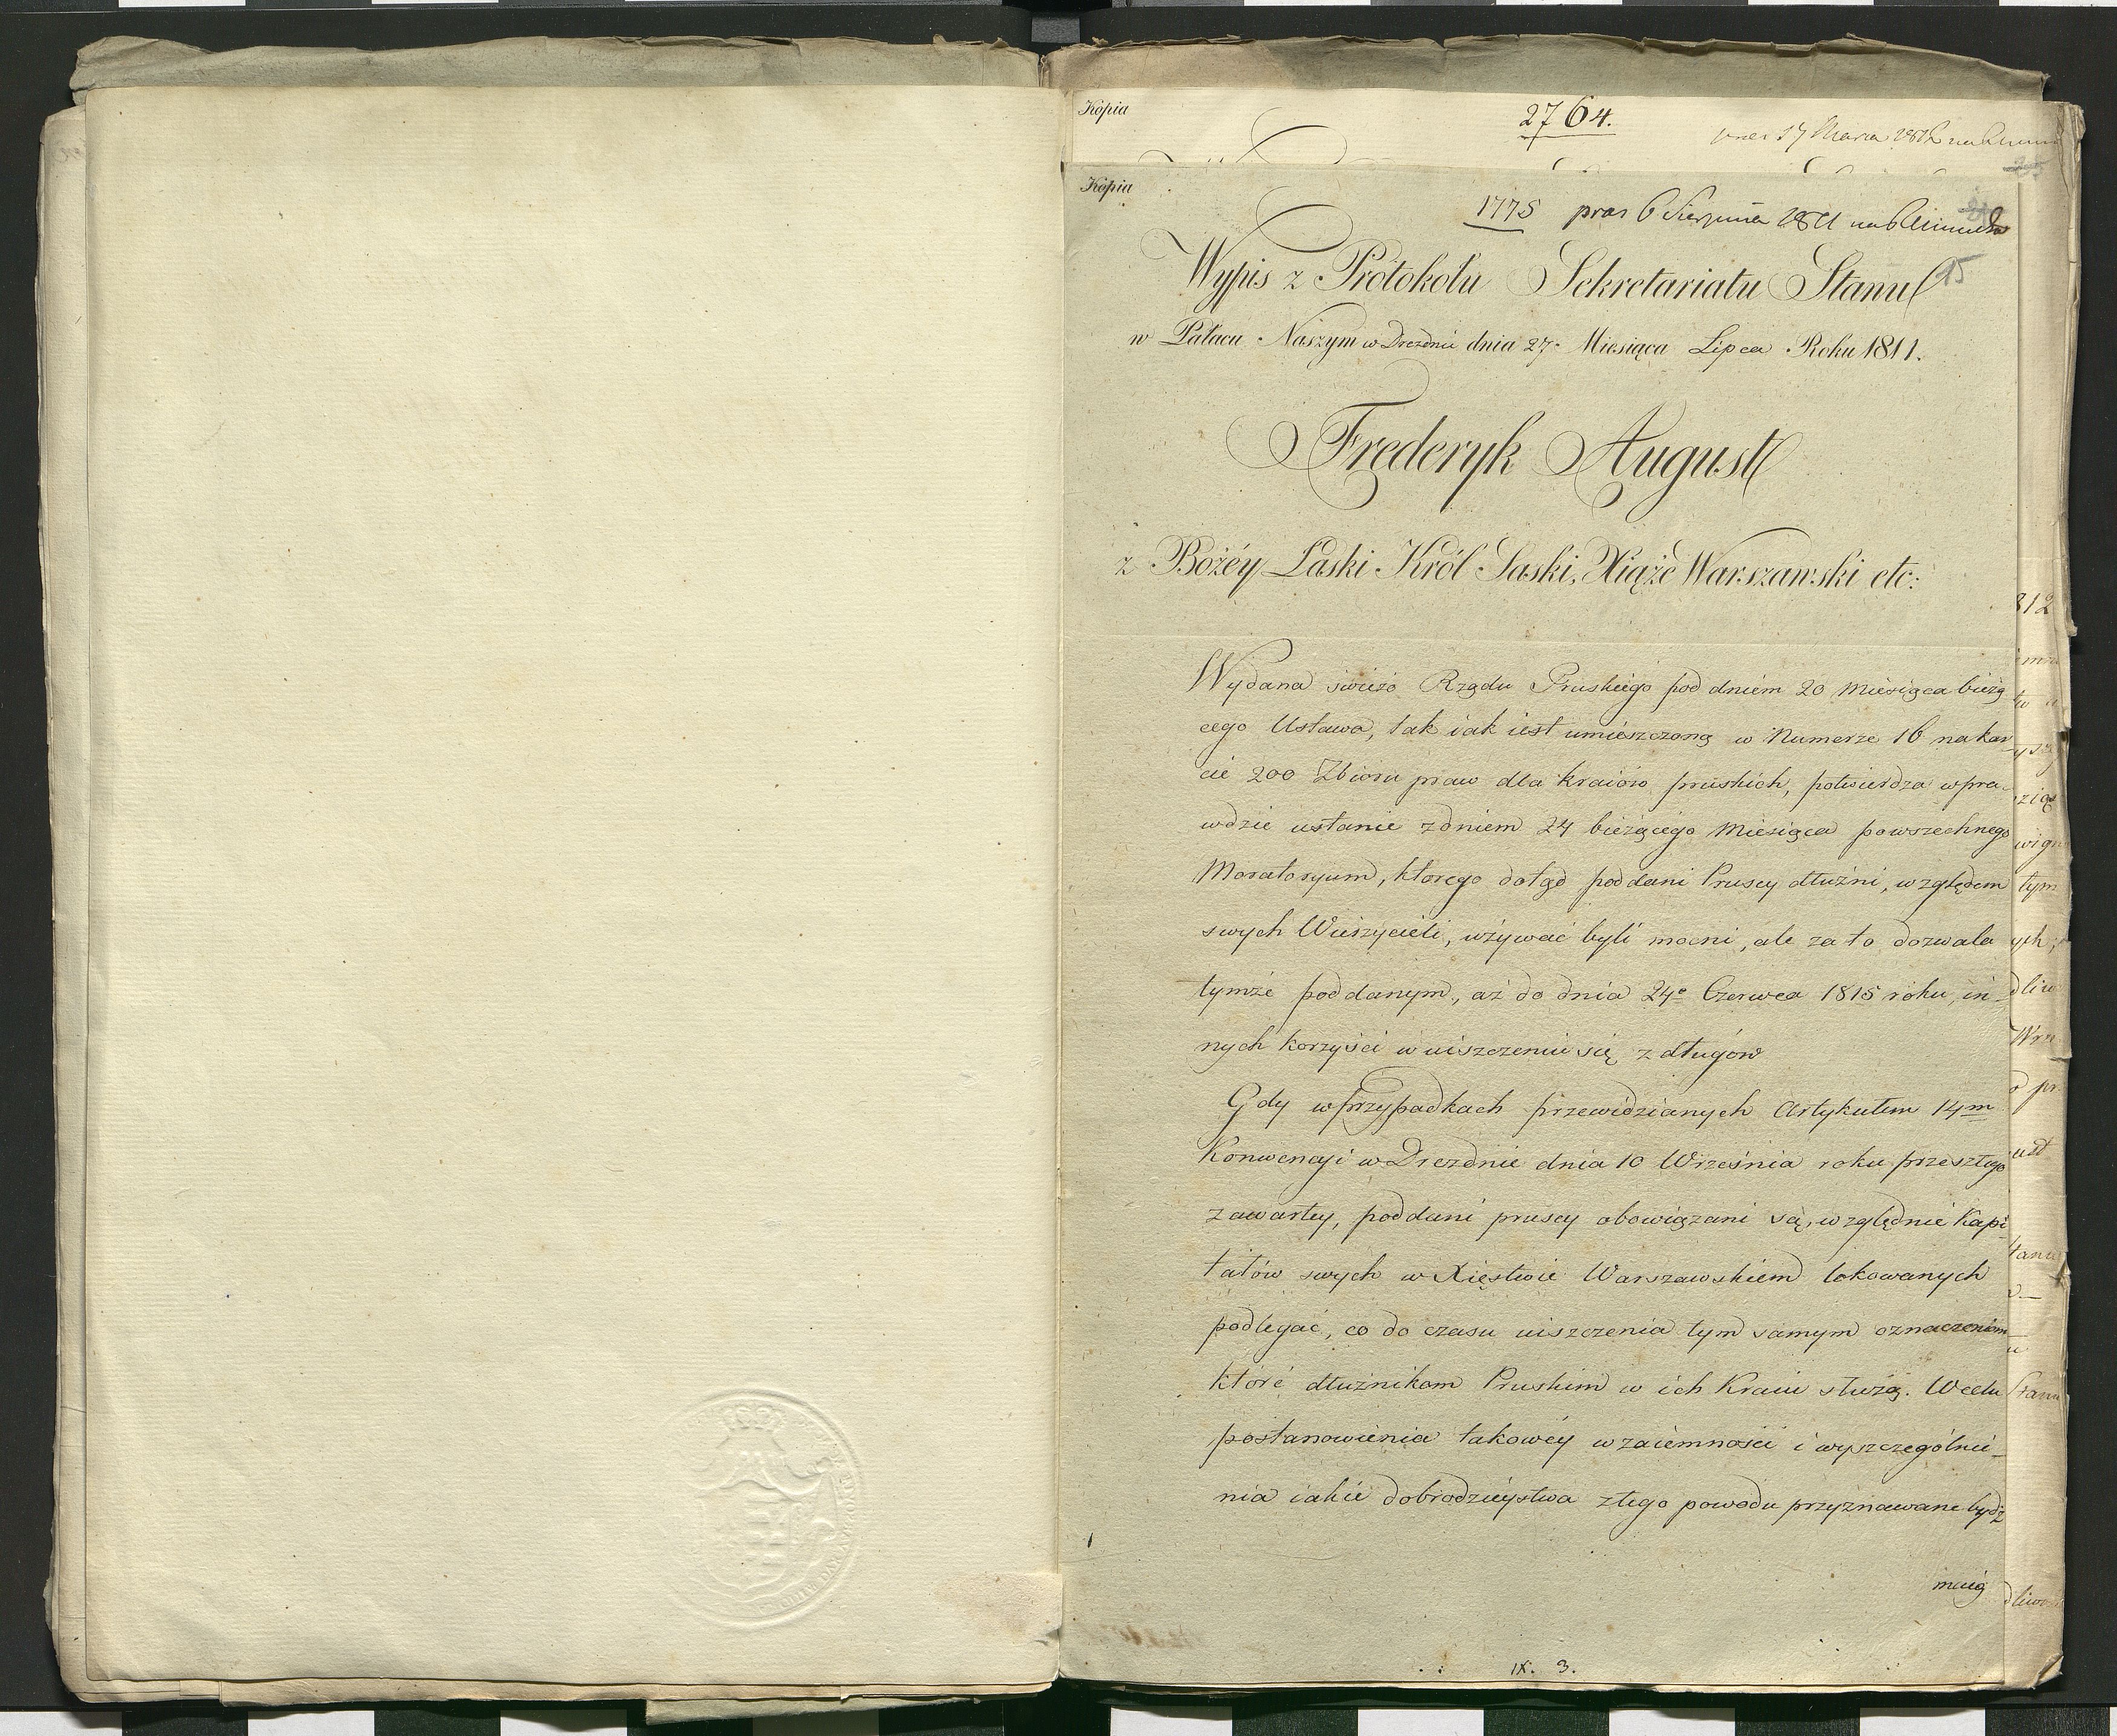 Kopia
2764.
Kopia
1775 pras 6 Sierpnia 1811
Wypis z Protokołu Sekretariatu Stanu
15
w Pałacu Naszym w Dreznie dnia 27. Miesiąca Lipca Roku 1811.
Frederyk August
z Bożéy Łaski Król Saski, Xiąże Warszawski etc:
Wydana swieżo Rządu Pruskiego pod dniem 20 Miesiąca bieżą
cego Ustawa, tak iak iest umieszczoną w Numerze 16 na kar
cie 200 Zbioru praw dla kraiów pruskich, potwierdza wpra-
wdzie ustanie z dniem 24 bieżącego Miesiąca powszechnego
Moratoryum, ktorego dotąd poddani Pruscy dłużni, względem
swych Wierzycieli, używać byli mocni, ale za to dozwala
tymże poddanym, aż do dnia 24º Czerwca 1815 roku, in-
nych korzyści w uiszczeniu się z długów
Gdy w przypadkach przewidzianych Artykułem 14m
Konwencyi w Dreznie dnia 10 Września roku przeszłego
zawartey, poddani pruscy obowiązani są, względnie Kapi
tałów swych w Xięstwie Warszawskiem lokowanych
podlegać, co do czasu uiszczenia tym samym oznaczeniom
któré dłużnikom Pruskim w ich Kraiu służą. W celu
postanowienia takowéy wzaiemności i wyszczególnie-
nia iakie dobrodzieystwa z tego powodu przyznawane bydź
maią
IX. 3.